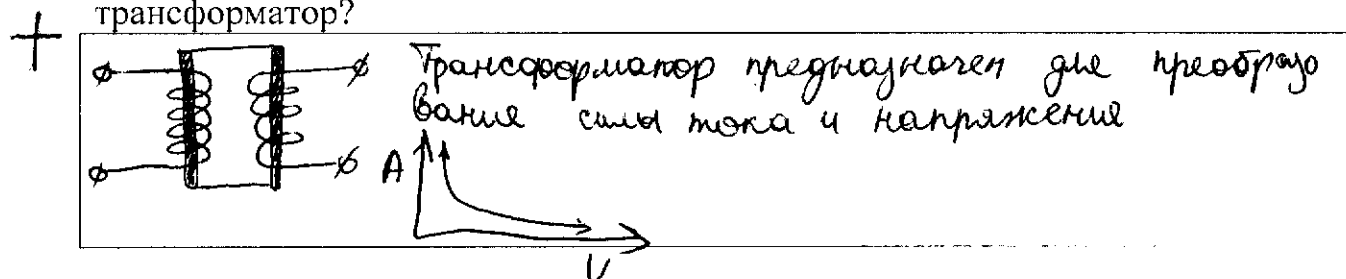 трансформатор?
+
Трансформатор предназначен для преобразо
вания силы тока и напряжения
A
V